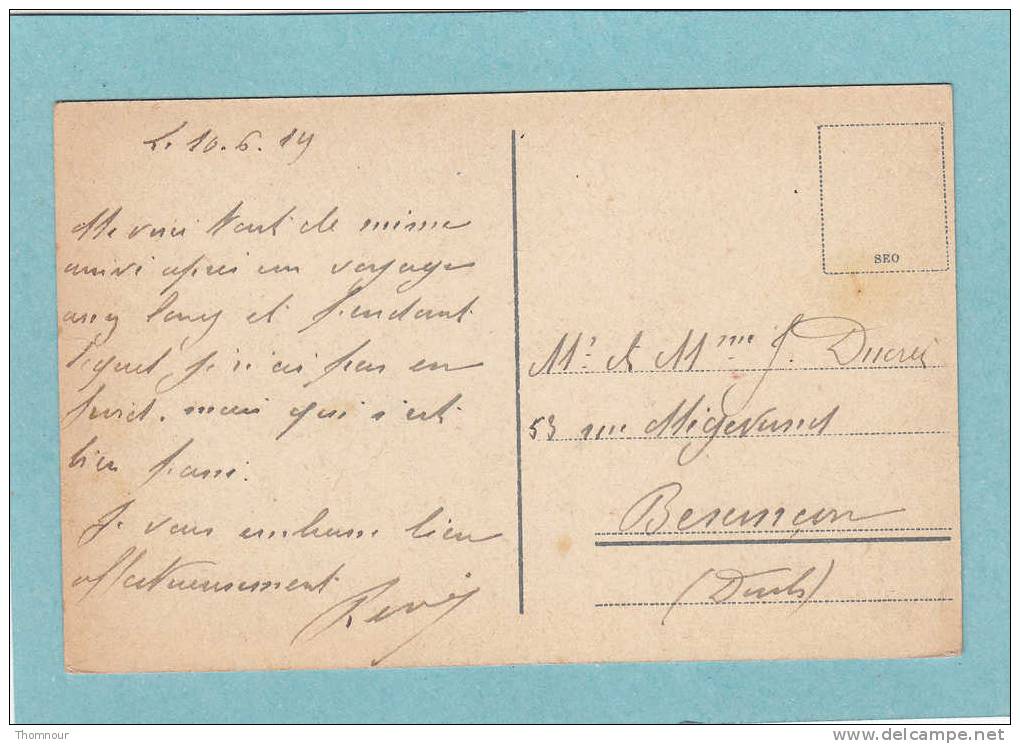 L. 10.6.19
Me voici tout de même
arrivé après un voyage
assez long et pendant
lequel je n'ai pas eu
froid, mais qui s'est
bien passé.
Je vous embrasse bien
affectueusement
SEO
Mr et Mme J.
53 rue Migevand
Besançon
(Doubs)
Thomnour
delcampe.net